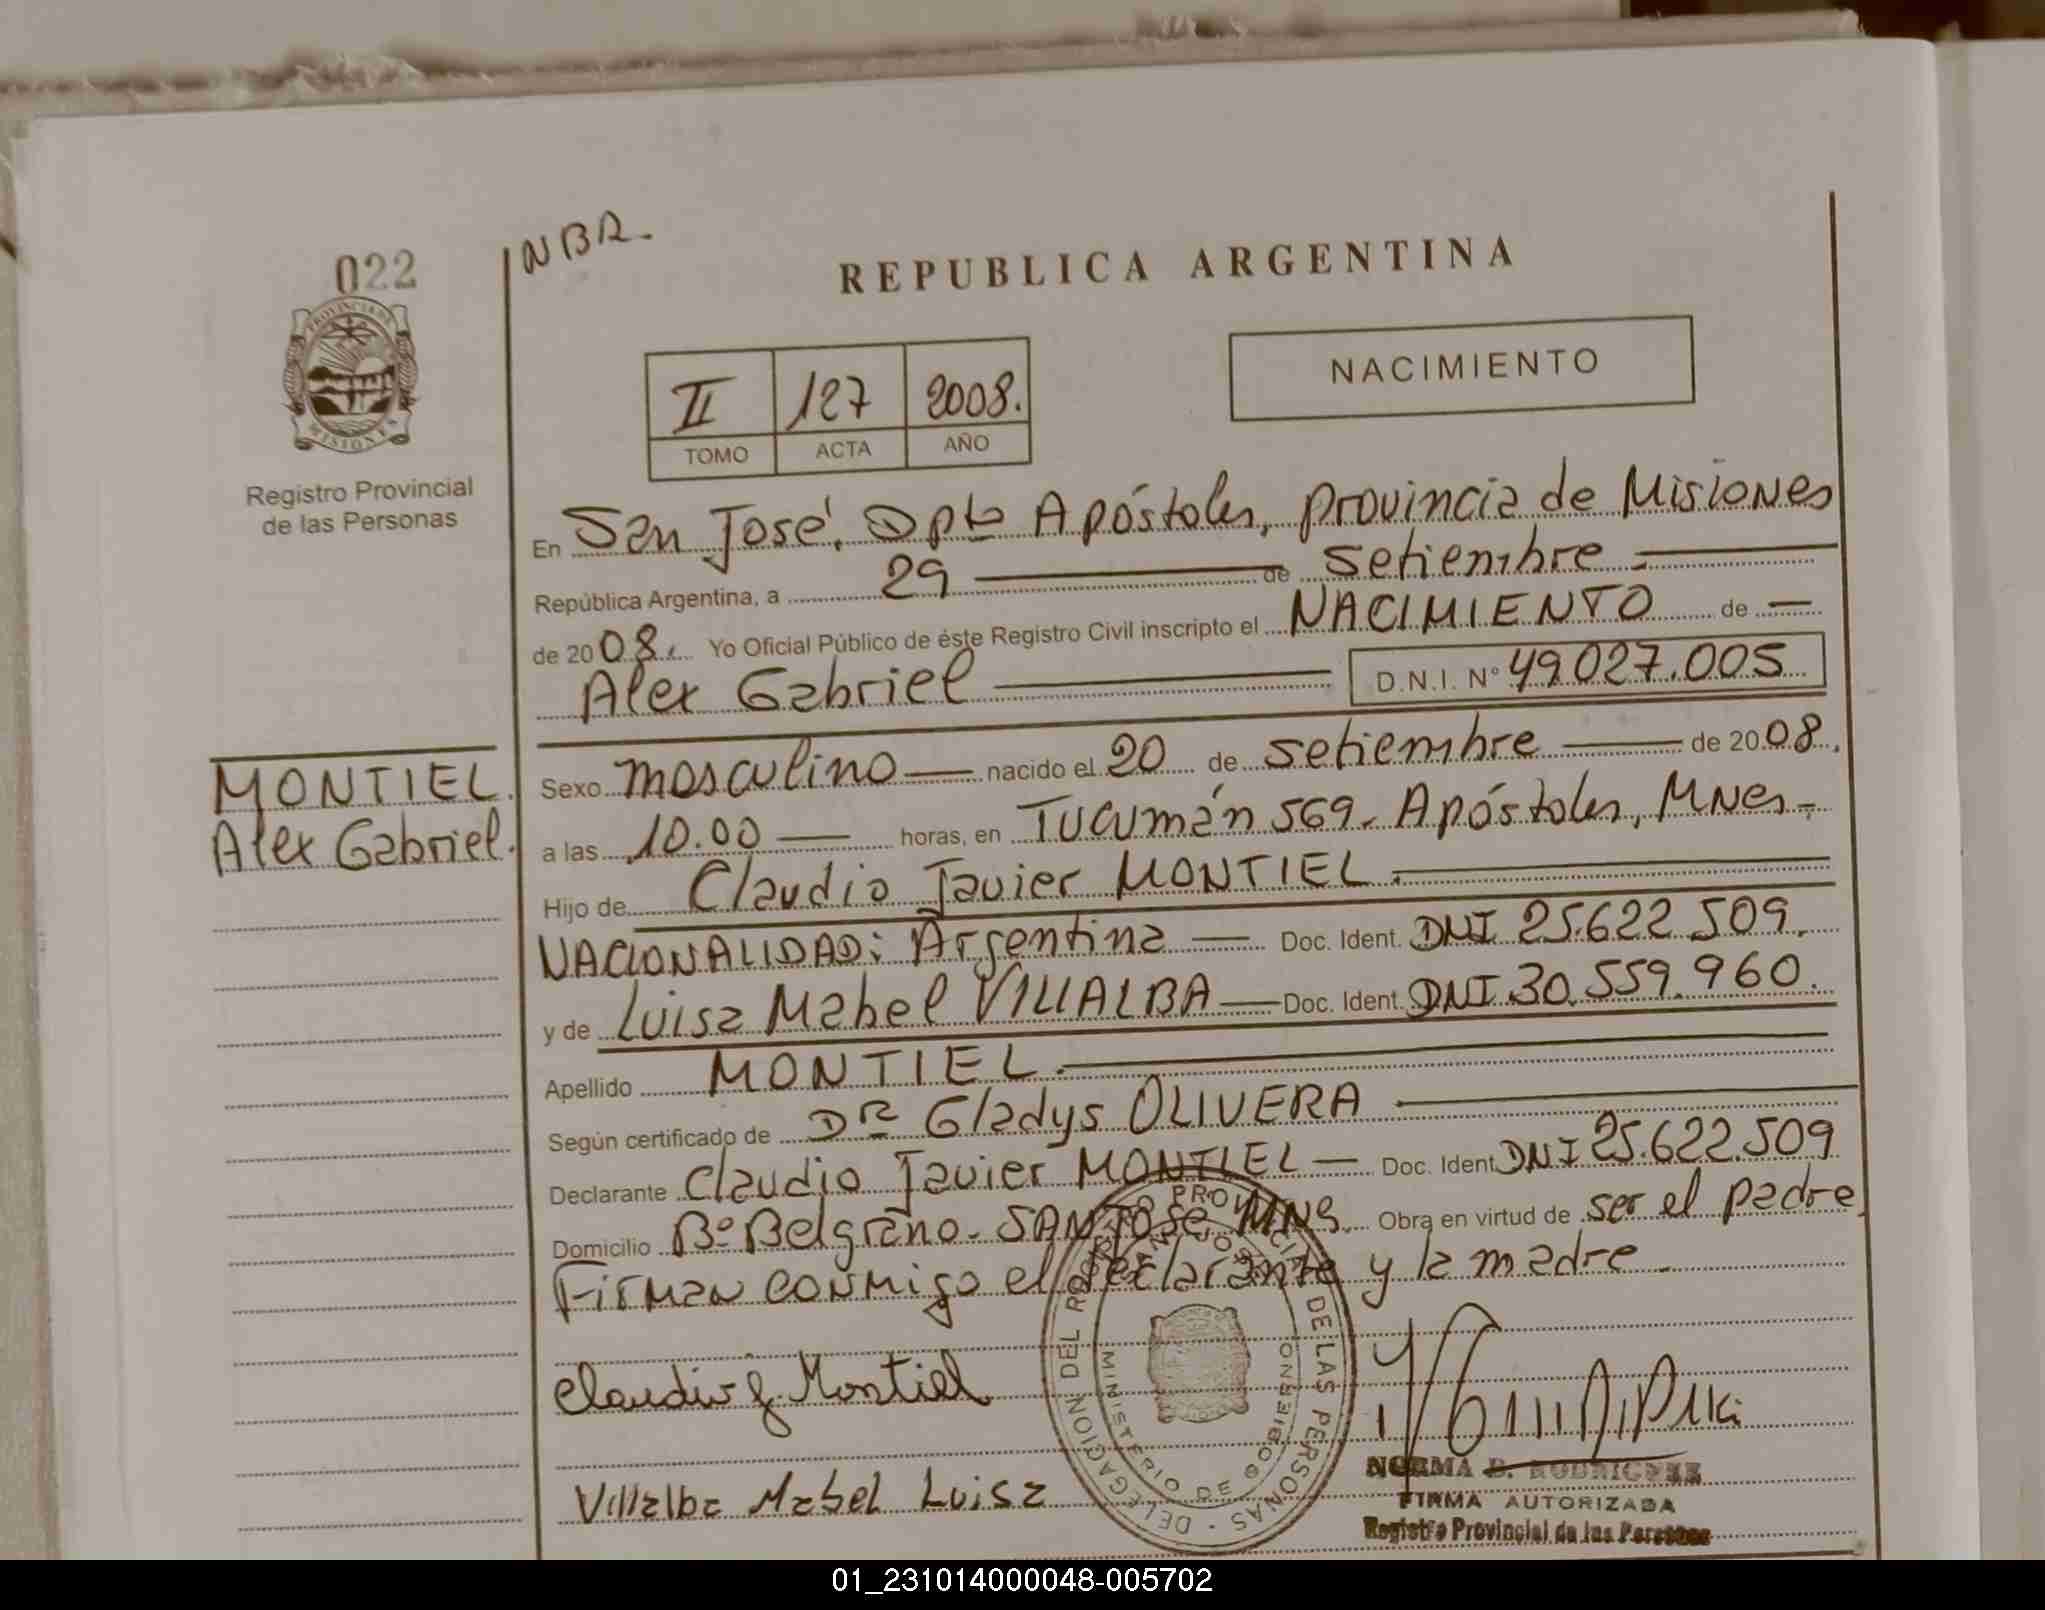 022
NBR.
REPUBLICA ARGENTINA
PROVINCIA DE
MISIONES
Registro Provincial
de las Personas
II 127 2008.
TOMO ACTA AÑO
NACIMIENTO
En San José, Dpto Apóstoles, provincia de Misiones
República Argentina, a 29 — de setiembre —
de 2008. Yo Oficial Público de éste Registro Civil inscripto el NACIMIENTO de —
Alex Gabriel — D.N.I. N° 49.027.005
MONTIEL
Alex Gabriel.
Sexo masculino — nacido el 20 de setiembre — de 2008.
a las 10.00 — horas, en Tucumán 569. Apóstoles, Mnes.-
Hijo de Claudio Javier MONTIEL.
NACIONALIDAD: Argentina — Doc. Ident. DNI 25.622.509.
y de Luisa Mabel VILLALBA — Doc. Ident. DNI 30.559.960.
Apellido MONTIEL.
Según certificado de Dra Gladys OLIVERA —
Declarante Claudio Javier MONTIEL — Doc. Ident. DNI 25.622.509
Domicilio B° Belgrano. SAN JOSé MNS. Obra en virtud de ser el padre.
Firman conmigo el declarante y la madre.
Claudio J. Montiel
Villalba Mabel Luisa
DELEGACION DEL REGISTRO PROVINCIAL DE LAS PERSONAS
MINISTERIO DE GOBIERNO
NORMA B. RODRIGUEZ
FIRMA AUTORIZADA
Registro Provincial de las Personas
01_231014000048-005702